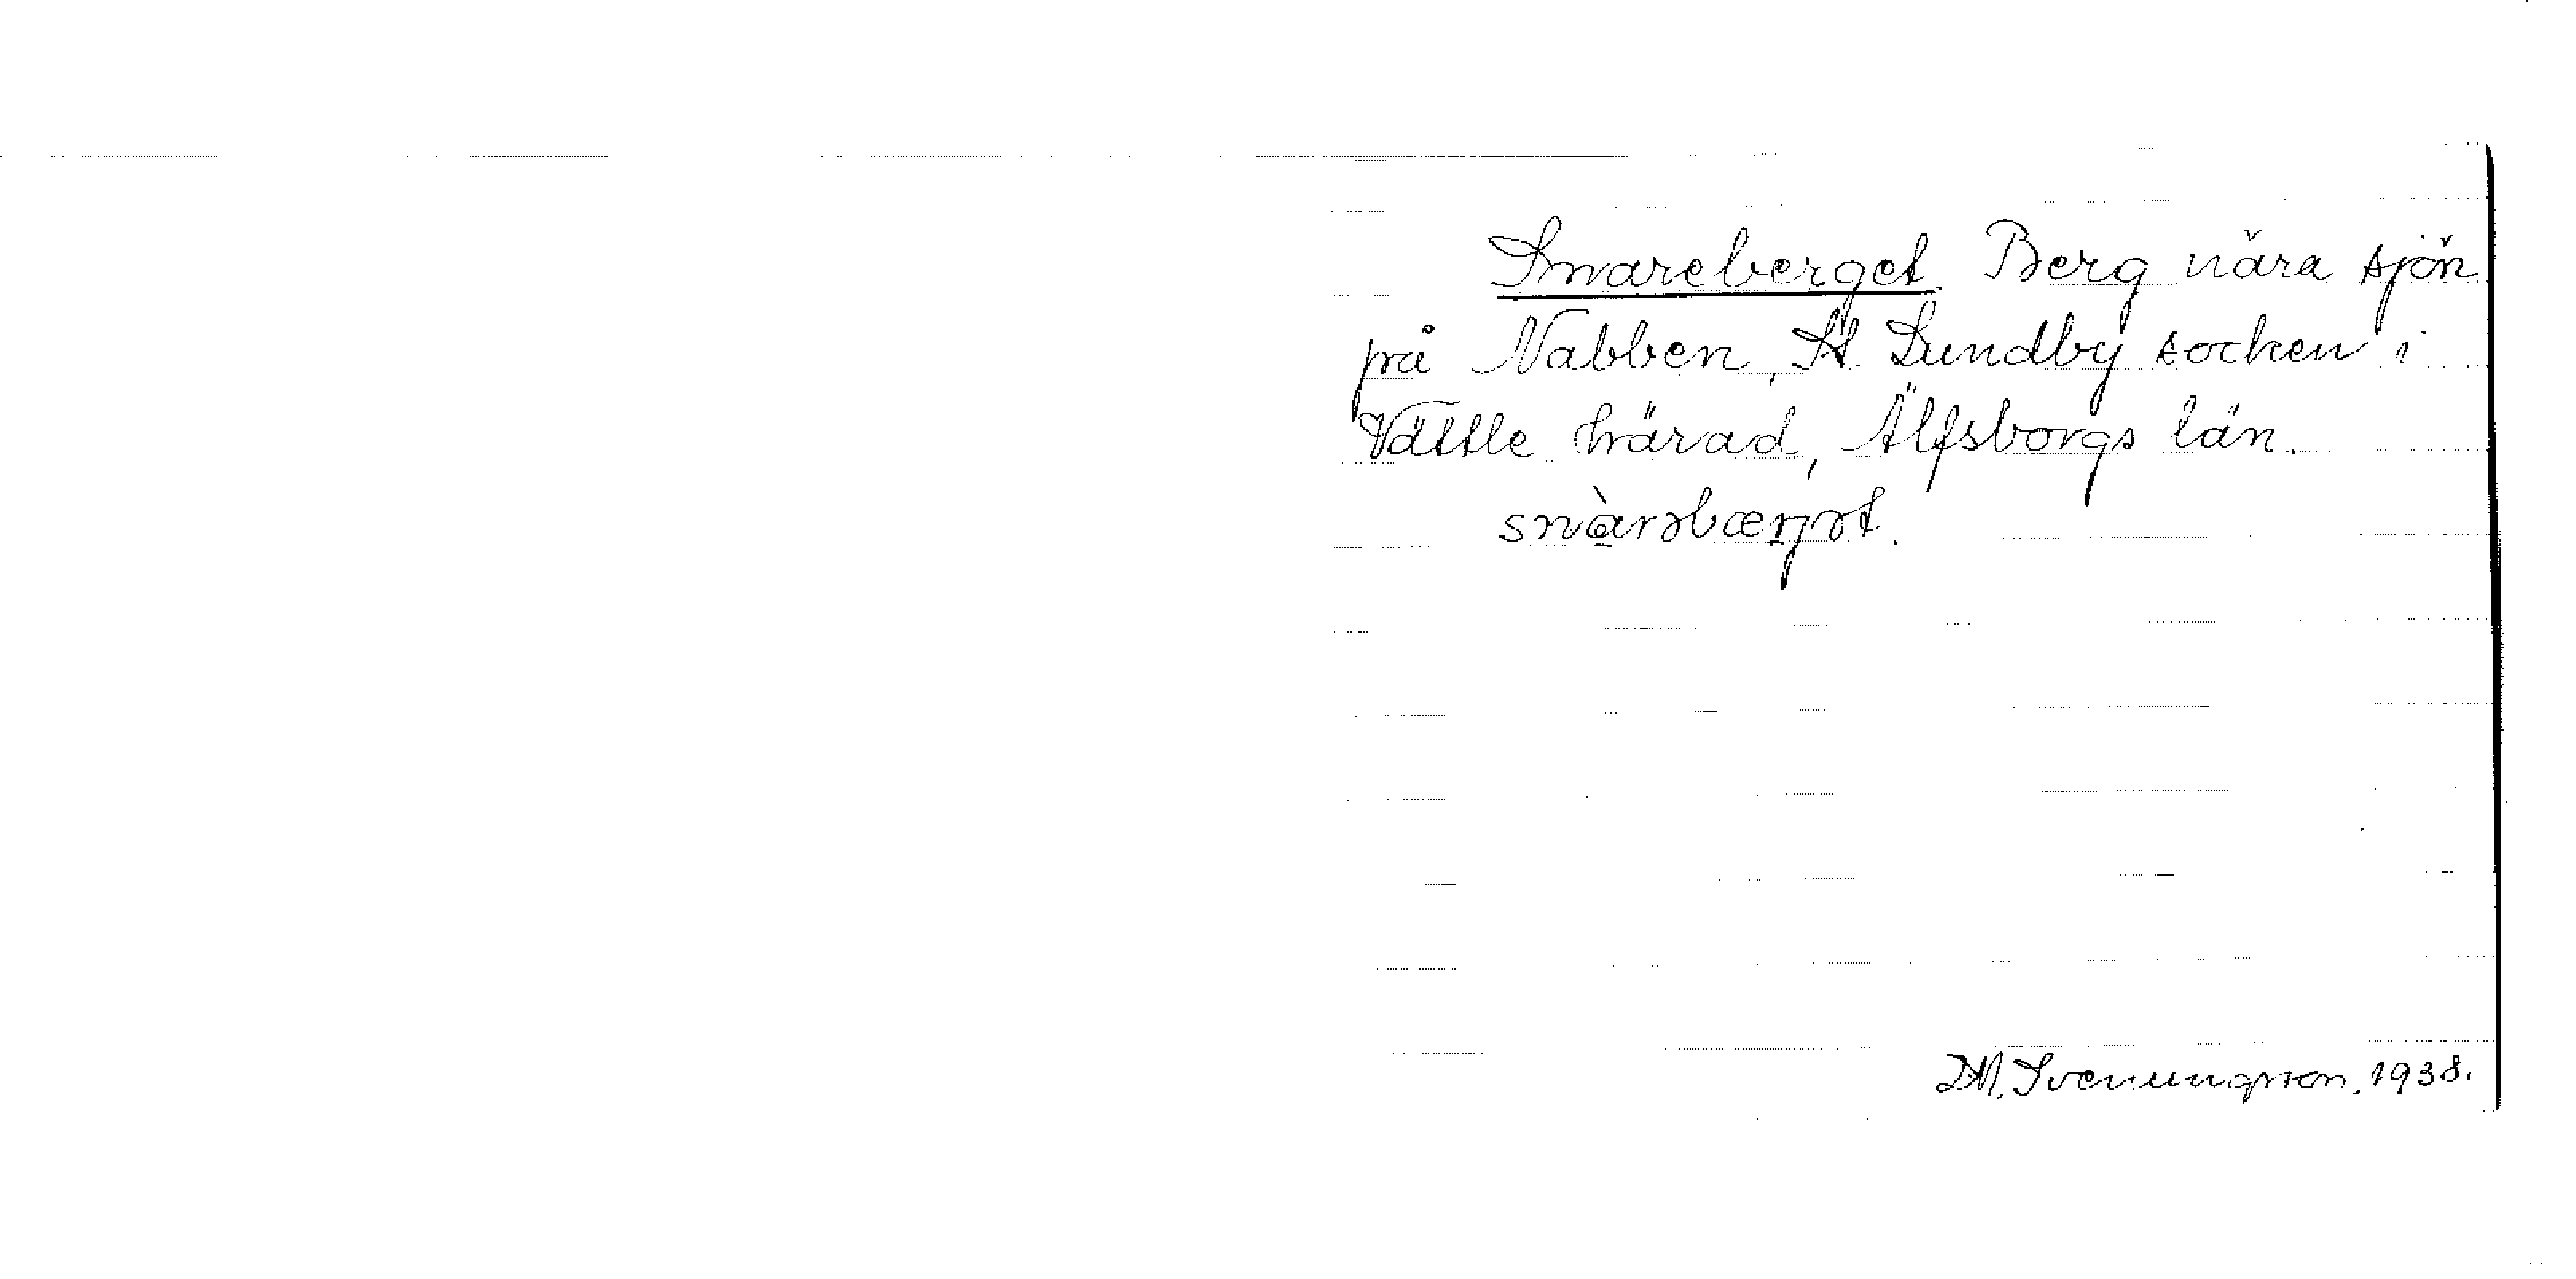 Snareberget. Berg nära sjön
på Nabben, St. Lundby socken i
Vättle härad, Älfsborgs län.
snàrəbærjət.
D.M. Svenungsson. 1938.